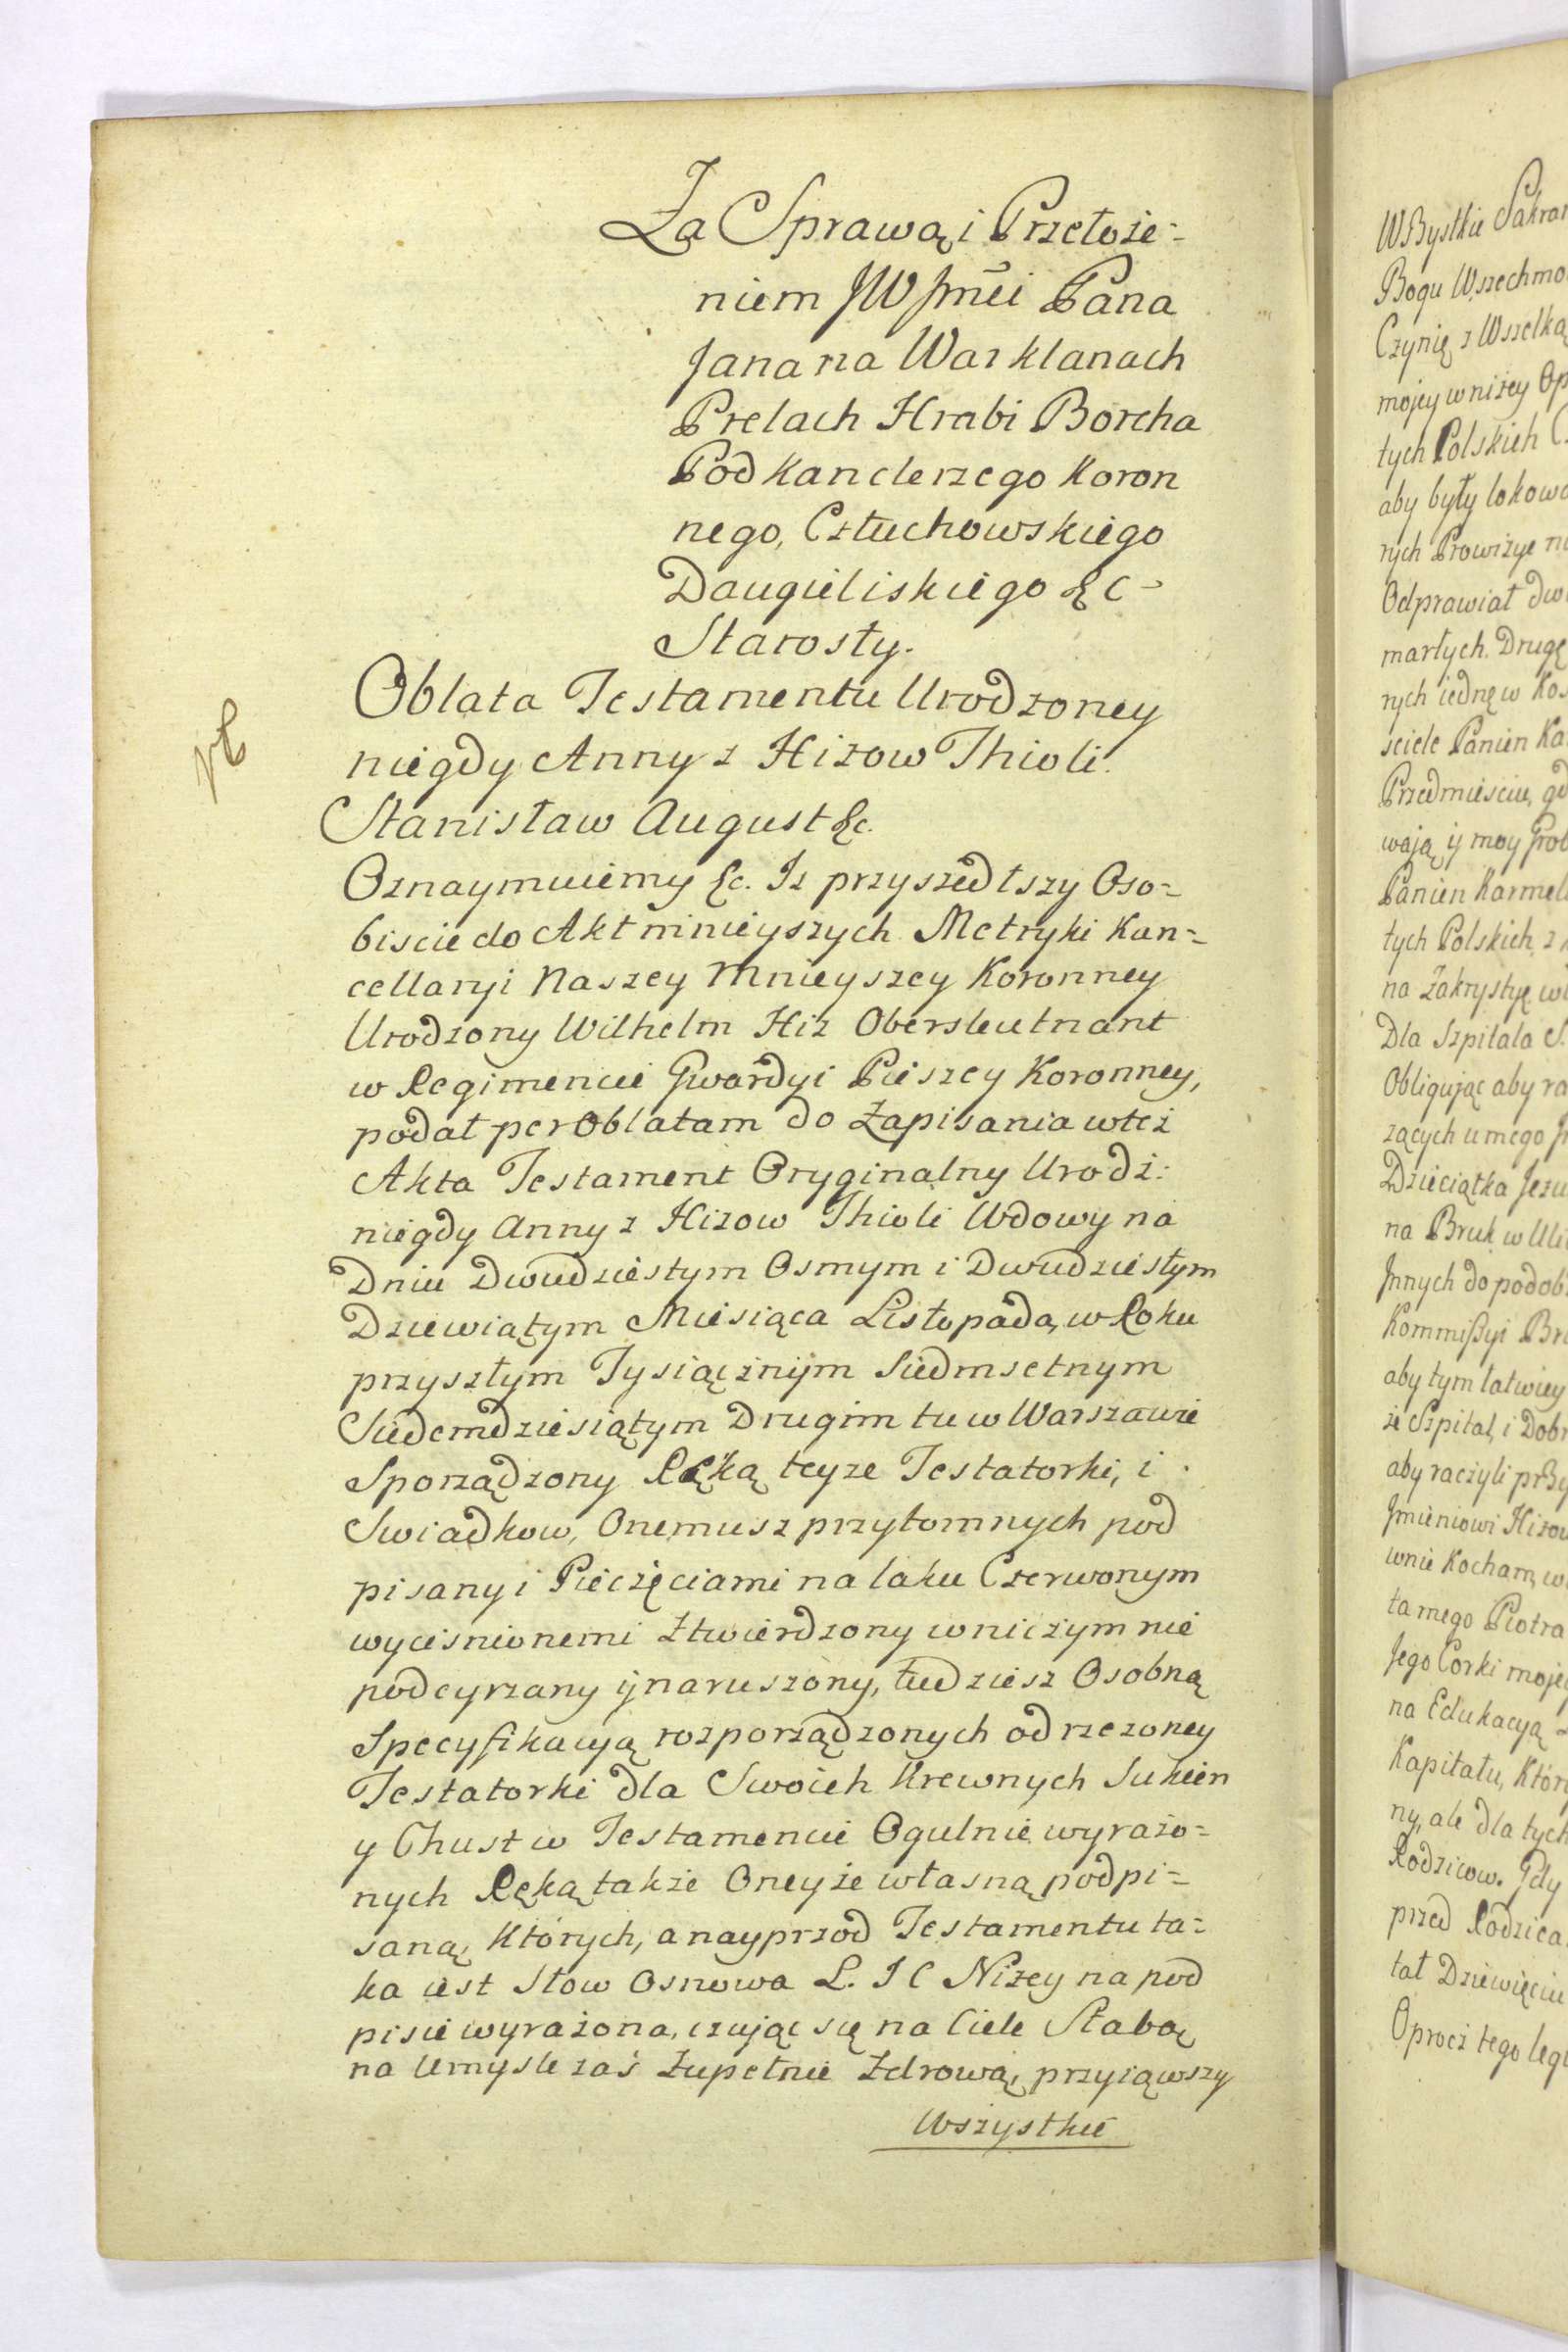 Za Sprawą i Przełoże=
niem JW Jmći Pana
Jana na Warklanach
Prelach Hrabi Borcha
Podkanclerzego Koron
nego, Człuchowskiego
Daugieliskiego &c-
Starosty.
Oblata Testamentu Urodzoney
niegdy Anny z Hizow Thioli.
Stanisław August &c.
Oznaymuiemy &c. Iz przyszedłszy Oso=
biscie do Akt ninieyszych Metryki Kan=
cellaryi Naszey Mnieyszey Koronney
Urodzony Wilhelm Hiz Obersleutnant
w Regimencie Gwardyi Pieszey Koronney,
podał per Oblatam do Zapisania w też
Akta Testament Oryginalny Urodz:
niegdy Anny z Hizow Thioli Wdowy na
Dniu Dwudziestym Osmym i Dwudziestym
Dziewiątym Miesiąca Listopada, w Roku
przyszłym Tysiącznym Siedmsetnym
Siedemdziesiątym Drugim tu w Warszawie
Sporządzony Ręką teyze Testatorki, i
Swiadkow, Onemusz przytomnych pod
pisany i Pieczęciami na laku Czerwonym
wycisnionemi Ztwierdzony w niczym nie
podeyrzany ij naruszony, tudziesz Osobną
Specyfikacyą rozporządzonych od rzeczoney
Testatorki dla Swoich Krewnych Sukien
y Chust w Testamencie Ogulnie wyrażo=
nych Ręką także Oneyże własną podpi=
saną, Których, a nayprzod Testamentu ta=
ka iest Słow Osnowa L. J C Niżey na pod
pisie wyrażona, czując się na Ciele Słabą
na Umysle zaś Zupełnie Zdrową, przyiąwszy
Wszystkie
WSzystkie Sakra
Bogu Wszechmo
Czynię z Wszelką
mojey w niżey Op
tych Polskich
aby były lokowa
rych Prowizye
Odprawiał dw
marłych. Drugę
rych iednę w Kos
sciele Panien Ka
Przedmieściu, gd
wają ij moy Grob
Panien Karmel
tych Polskich, z
na Zakrystyę w
Dla Szpitala S.
Obligując aby ra
zących u mego
Dzieciątka Jezu
na Bruk w Uli
Jnnych do podob
Kommissyi Br
aby tym łatwiey
że Szpital, i Dobr
aby raczyli przy
Jmieniowi Hizow
wnie Kocham, w
tamego Piotra
Jego Corki moje
na Edukacyą
Kapitału, Któr
ny, ale dla tych
Rodzicow. Gdy
przed Rodzica
tał Dziewięciu
Oprocz tego leg